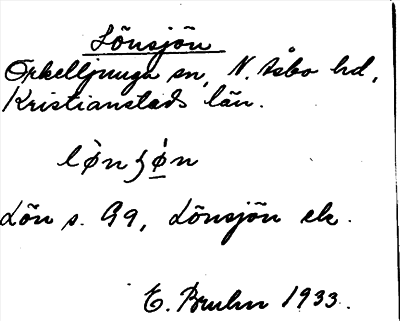 Lönsjön
Örkelljunga sn, N. Åsbo hd,
Kristianstads län.
lø̀nʒø̀n
Lön s. 99, Lönsjön ek.
E. Bruhn 1933.